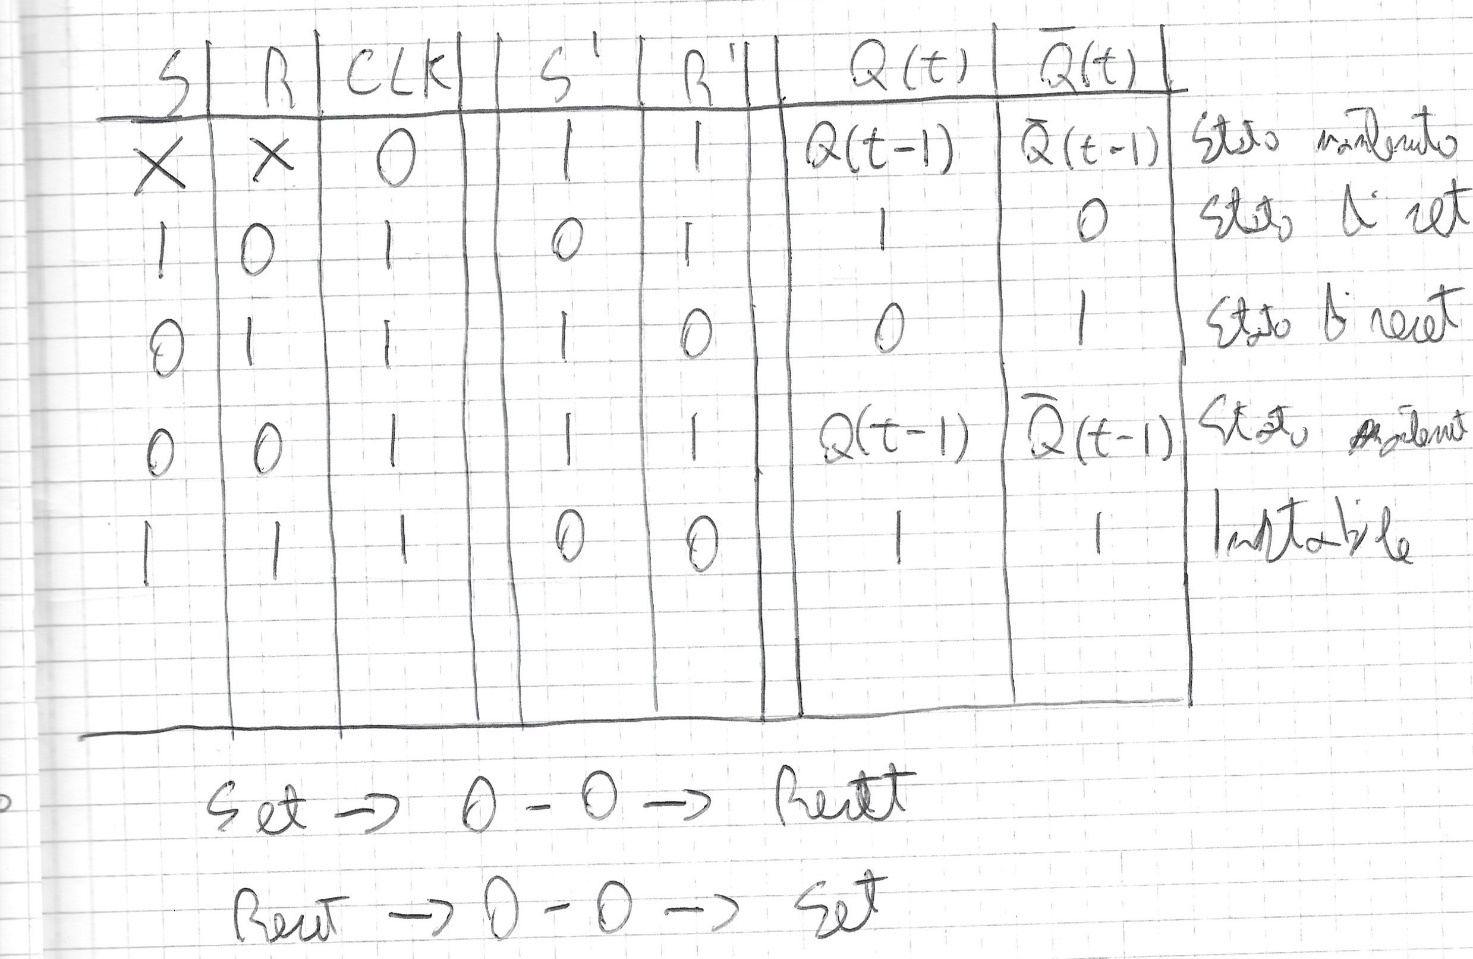 S R CLK S' R' Q(t) Q̄(t)
X X 0 1 1 Q(t-1) Q̄(t-1) Stato mantenuto
1 0 1 0 1 1 0 Stato di set
0 1 1 1 0 0 1 Stato di reset
0 0 1 1 1 Q(t-1) Q̄(t-1) Stato
1 1 1 0 0 1 1 Instabile
Set -> 0 - 0 -> Reset
Reset -> 0 - 0 -> Set